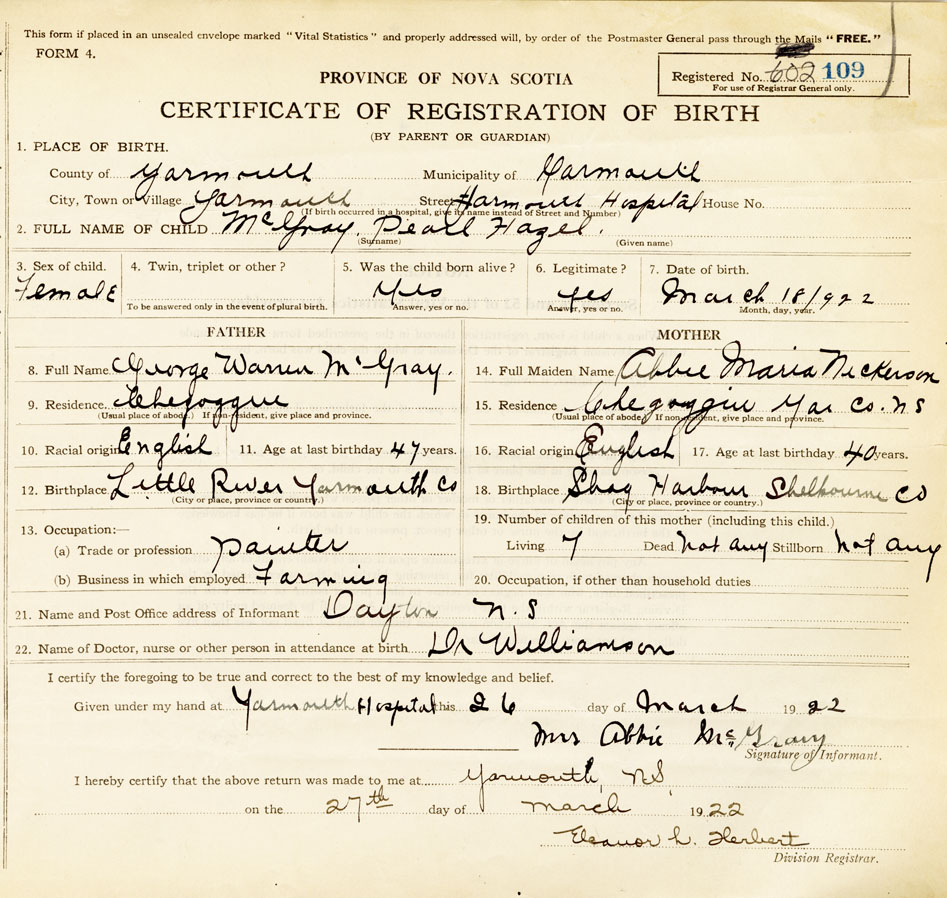 This form if placed in an unsealed envelope marked "Vital Statistics" and properly addressed will, by order of the Postmaster General pass through the Mails "FREE."
FORM 4.
PROVINCE OF NOVA SCOTIA
Registered No. 602 109
For use of Registrar General only.
CERTIFICATE OF REGISTRATION OF BIRTH
(BY PARENT OR GUARDIAN)
1. PLACE OF BIRTH.
County of Yarmouth Municipality of Yarmouth
City, Town or Village Yarmouth Street Yarmouth Hospital House No.
(If birth occurred in a hospital, give its name instead of Street and Number)
2. FULL NAME OF CHILD McGray, Pearl Hazel.
(Surname) (Given name)
3. Sex of child. 4. Twin, triplet or other? 5. Was the child born alive? 6. Legitimate? 7. Date of birth.
Female Yes yes March 18/922
To be answered only in the event of plural birth. Answer, yes or no. Answer, yes or no. Month, day, year.
FATHER MOTHER
8. Full Name George Warren McGray. 14. Full Maiden Name Abbie Maria Nickerson
9. Residence Chegoggin 15. Residence Chegoggin Yar Co. NS
(Usual place of abode.) If non-resident, give place and province. (Usual place of abode.) If non-resident, give place and province.
10. Racial origin English 11. Age at last birthday 47 years. 16. Racial origin English 17. Age at last birthday 40 years.
12. Birthplace Little River Yarmouth Co 18. Birthplace Shag Harbour Shelbourne Co
(City or place, province or country.) (City or place, province or country.)
13. Occupation:— 19. Number of children of this mother (including this child.)
(a) Trade or profession painter Living 7 Dead not any Stillborn not any
(b) Business in which employed Farming 20. Occupation, if other than household duties
21. Name and Post Office address of Informant Dayton N.S
22. Name of Doctor, nurse or other person in attendance at birth Dr Williamson
I certify the foregoing to be true and correct to the best of my knowledge and belief.
Given under my hand at Yarmouth Hospital this 26 day of March 1922
Mrs Abbie McGray
Signature of Informant.
I hereby certify that the above return was made to me at Yarmouth, NS
on the 27th day of March 1922
Eleanor L. Herbert
Division Registrar.